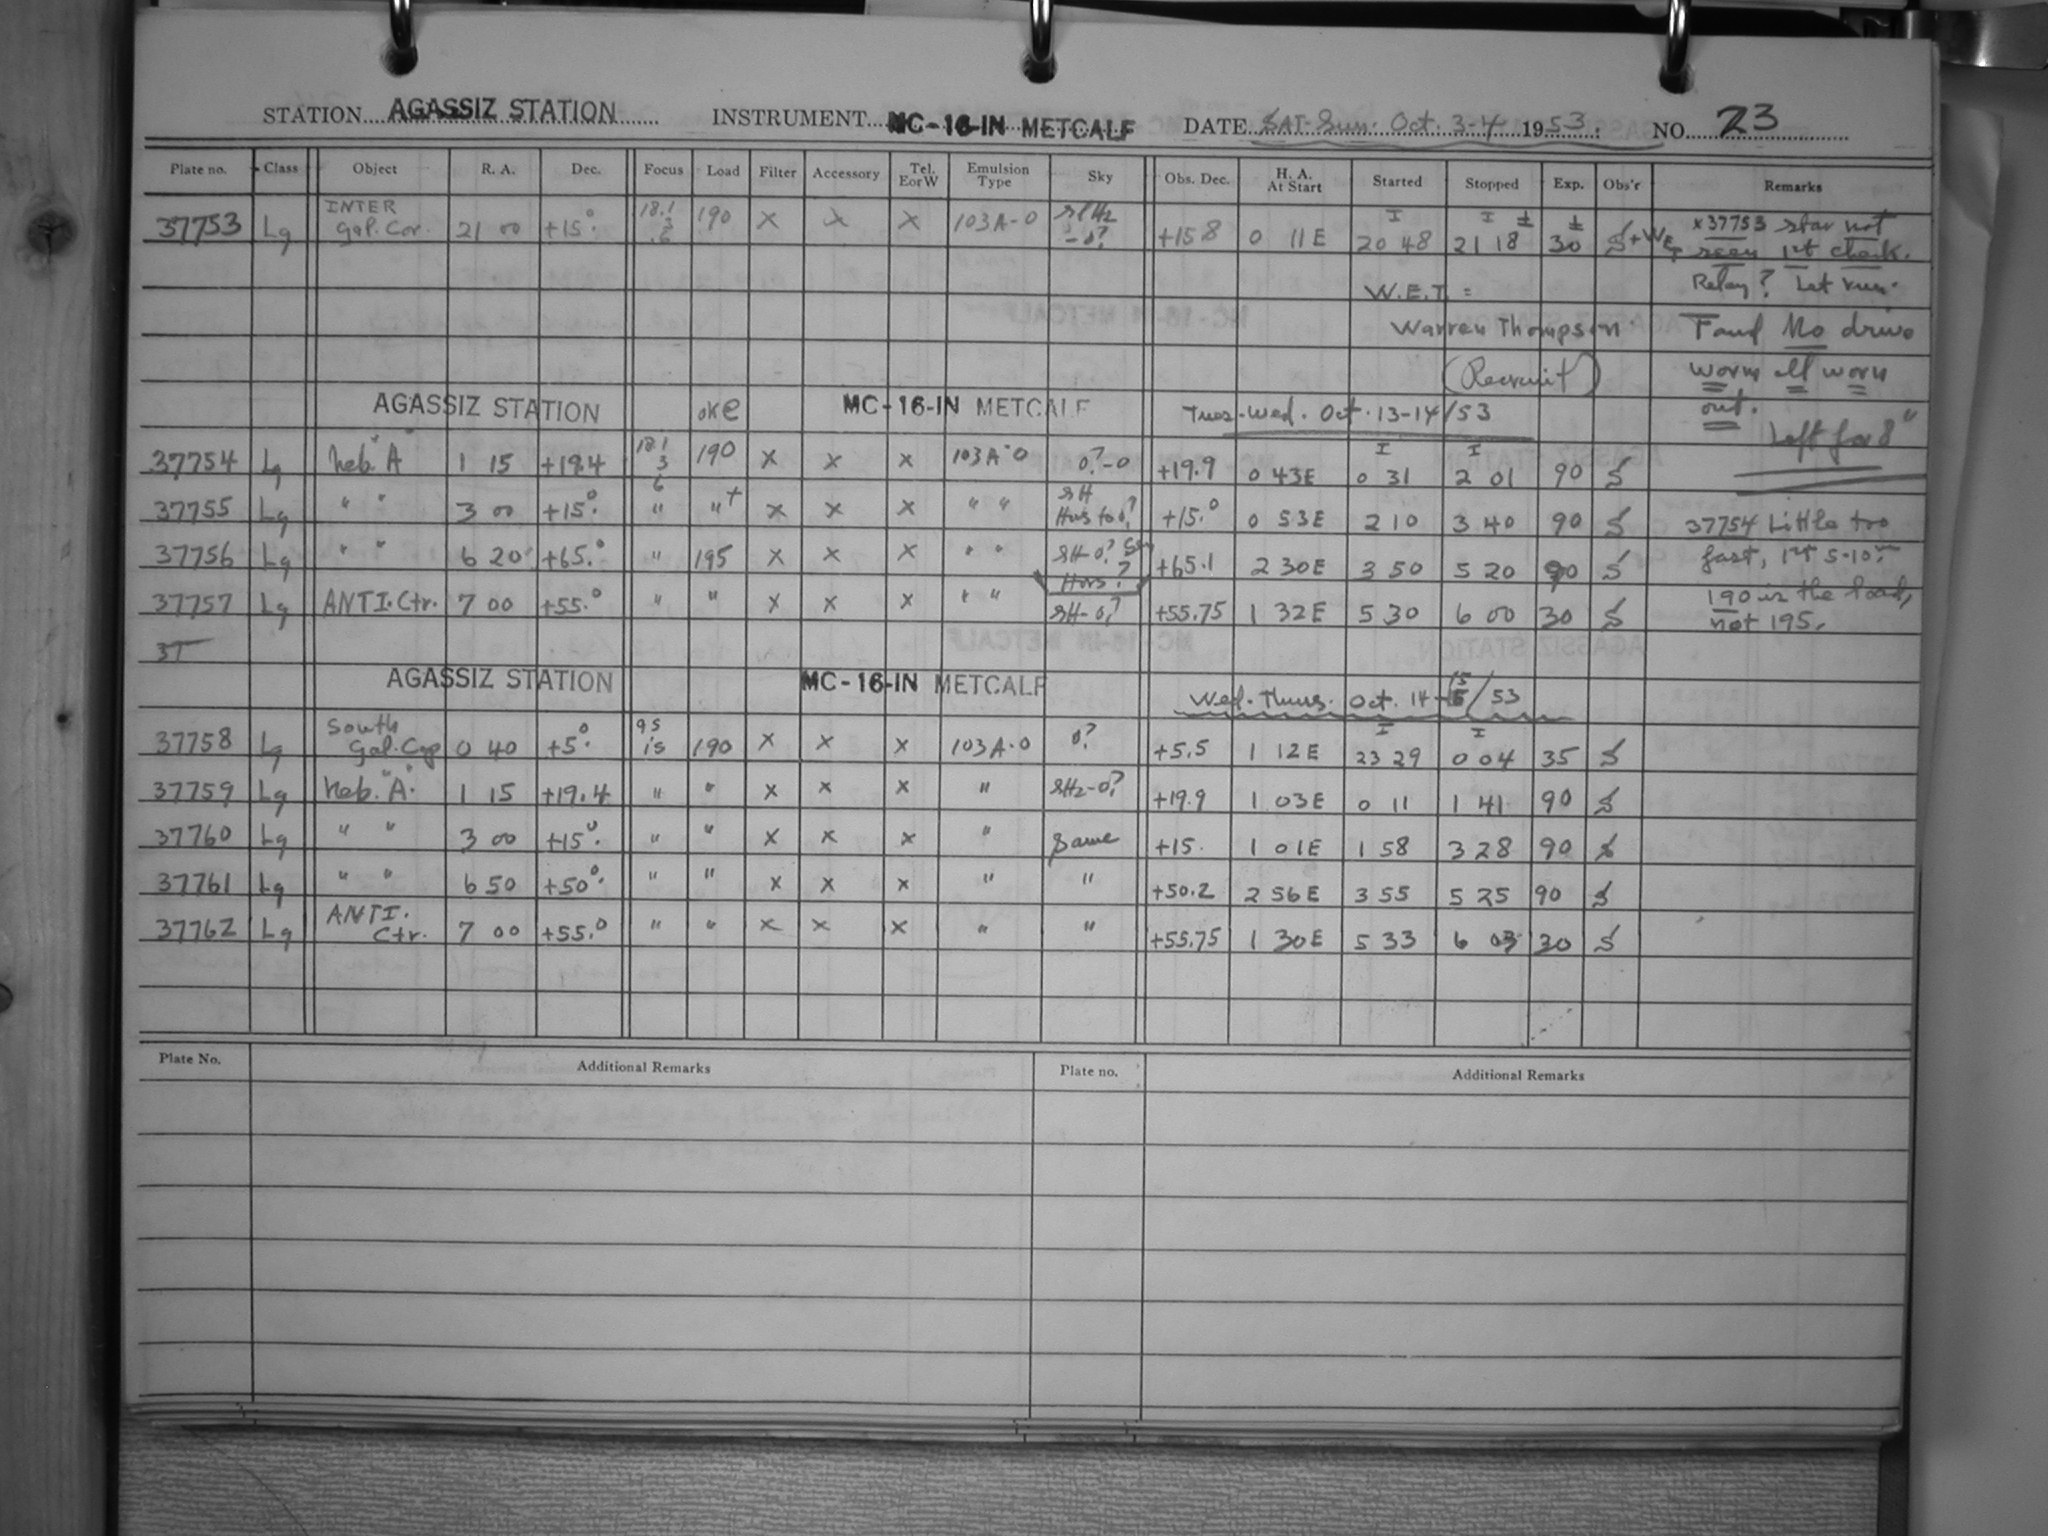 STATION AGASSIZ STATION INSTRUMENT MC-16-IN METCALF DATE SAT-Sun. Oct. 3-4 1953. NO. 23
Plate no. Class Object R. A. Dec. Focus Load Filter Accessory Tel. EorW Emulsion Type Sky Obs. Dec. H. A. At Start Started Stopped Exp. Obs'r Remarks
37753 Lg INTER Gal. Cor. 21 00 +15° 18.1 3 .6 190 X X X 103A-O SlH2 -0? +15 8 0 11E I 20 48 I ± 21 18 ± 30 S+WET x37753 star not
seen 1st check.
W.E.T. = Relay? Let run.
Warren Thompson Found No drive
(Recruit) worm all worn
out.
AGASSIZ STATION oke MC-16-IN METCALF Tues-Wed. Oct. 13-14/53 Left for 8"
37754 Lg Neb. "A" 1 15 +19.4 18.1 3 6 190 X X X 103A-O 0?-0 +19.9 0 43E I 0 31 I 2 01 90 S
37755 Lg " " 3 00 +15.° " "+ X X X " " SH Hrs to 0? +15.° 0 53E 2 10 3 40 90 S 37754 Little too
37756 Lg " " 6 20 +65.° " 195 X X X " " SH-0? Hrs? +65.1 2 30E 3 50 5 20 90 S fast, 1st 5-10m
37757 Lg ANTI.Ctr. 7 00 +55.° " " X X X " " SH-0? +55.75 1 32E 5 30 6 00 30 S 190 is the load,
not 195.
AGASSIZ STATION MC-16-IN METCALF Wed-Thurs. Oct. 14-15/53
37758 Lg South Gal. Cap 0 40 +5°. 95 is 190 X X X 103A-O 0? +5.5 1 12E I 23 29 I 0 04 35 S
37759 Lg Neb. "A". 1 15 +19.4 " " X X X " SH2-0? +19.9 1 03E 0 11 1 41 90 S
37760 Lg " " 3 00 +15°. " " X X X " Same +15. 1 01E 1 58 3 28 90 S
37761 Lg " " 6 50 +50°. " " X X X " " +50.2 2 56E 3 55 5 25 90 S
37762 Lg ANTI. Ctr. 7 00 +55.° " " X X X " " +55.75 1 30E 5 33 6 03 30 S
Plate No. Additional Remarks Plate no. Additional Remarks